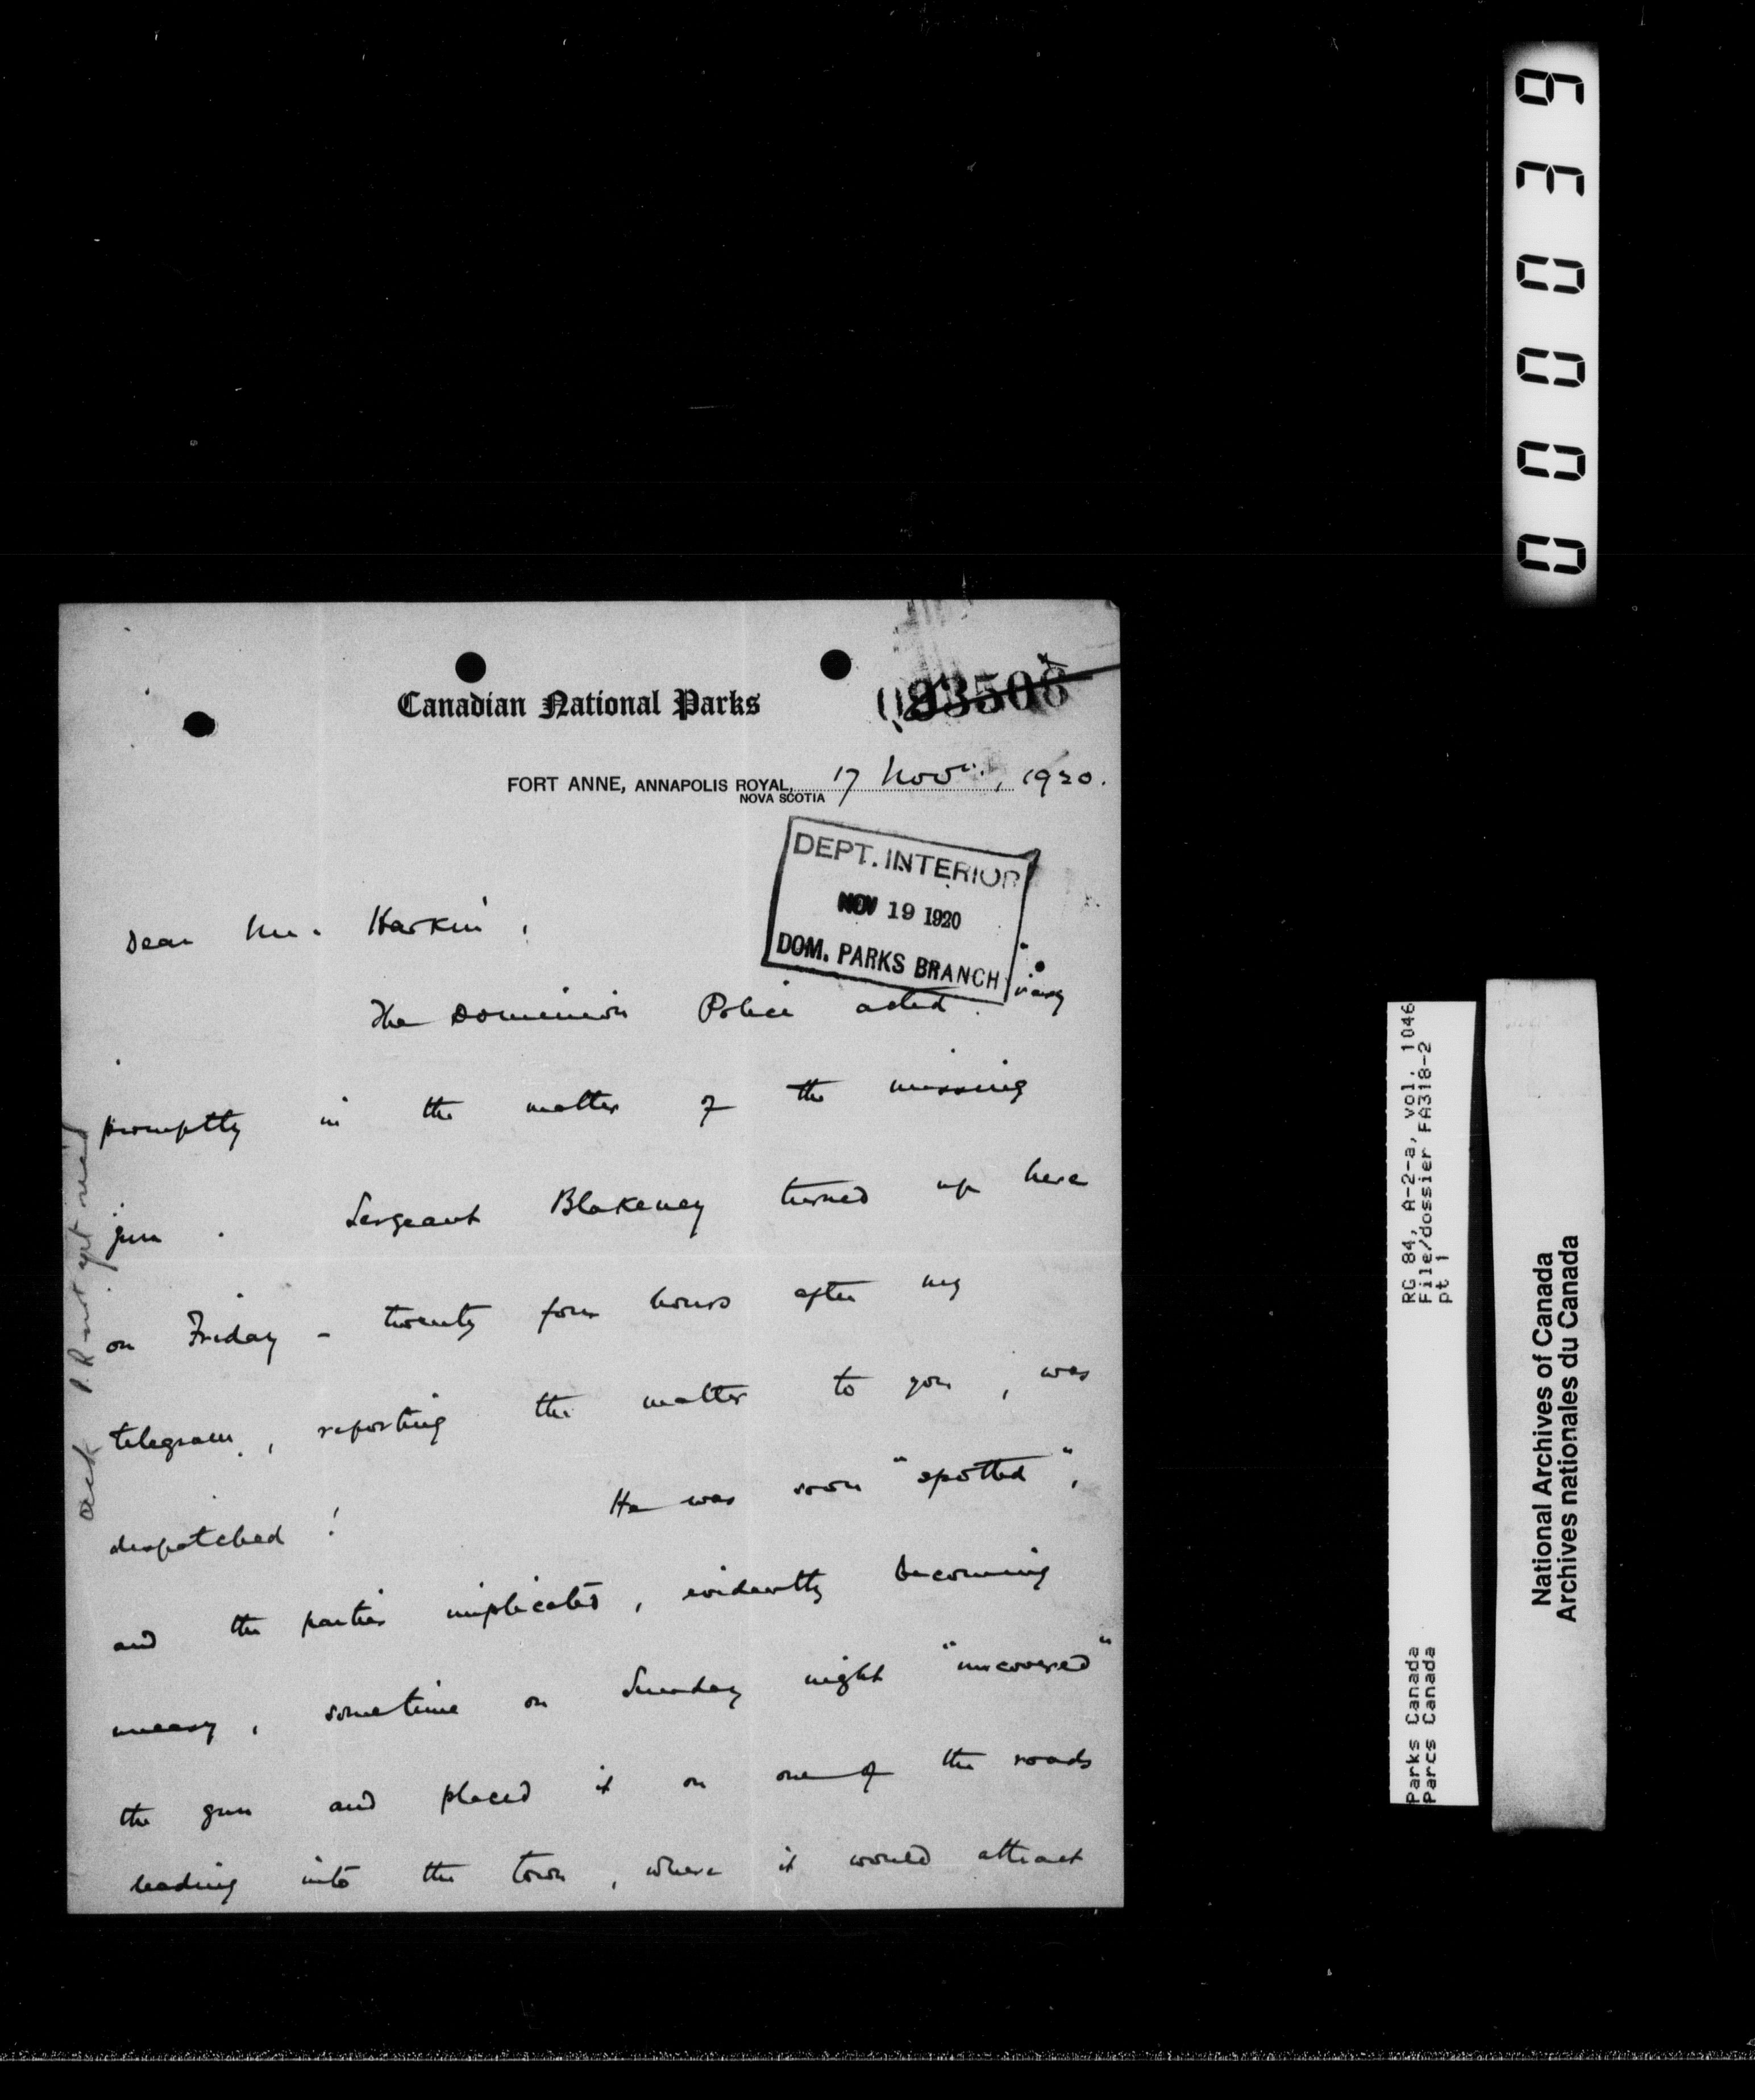 Canadian National Parks
093508
FORT ANNE, ANNAPOLIS ROYAL, 17 Novr., 1920.
NOVA SCOTIA
DEPT. INTERIOR
NOV 19 1920
DOM. PARKS BRANCH
Dear Mr. Harkin,
The Dominion Police acted very
promptly in the matter of the missing
gun. Sergeant Blakeney turned up here
on Friday - twenty four hours after my
telegram, reporting the matter to you, was
despatched! He was soon "spotted",
and the parties implicated, evidently becoming
uneasy, sometime on Sunday night "uncovered"
the gun and placed it on one of the roads
leading into the town, where it would attract
ack not yet
000039
RG 84, A-2-a, vol. 1046
File/dossier FA318-2
pt 1
Parks Canada
Parcs Canada
National Archives of Canada
Archives nationales du Canada